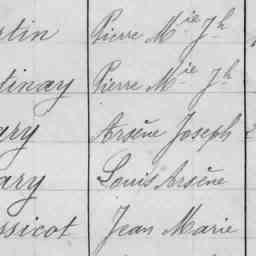 rtin Pierre Mie Jh
tinay Pierre Mie Jh
ary Arsène Joseph 2
ary Louis Arsène
ssicot Jean Marie